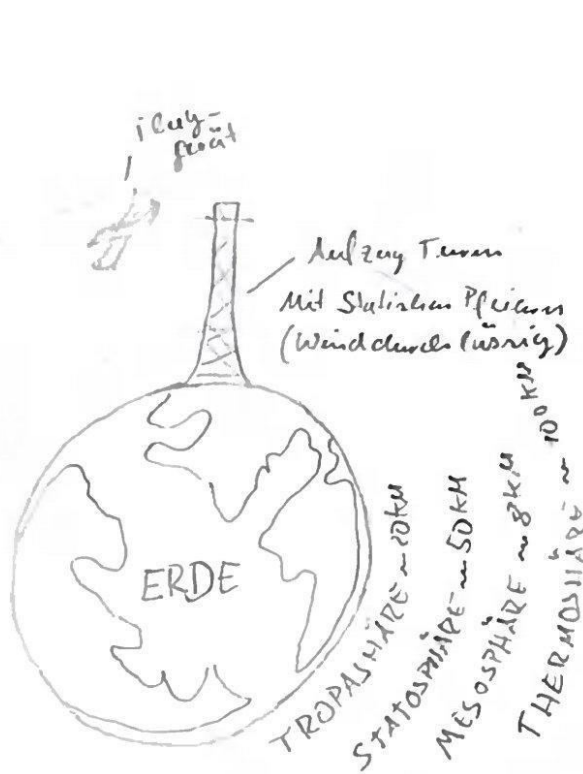 Flug-
gerät
Aufzug Turm
Mit Statischen Pfeilern
(Winddurchlässig)
ERDE
TROPASHÄRE ~ 20 KM
STATOSPHÄRE ~ 50 KM
MESOSPHÄRE ~ 8 KM
THERMOSHÄRE ~ 100 KM